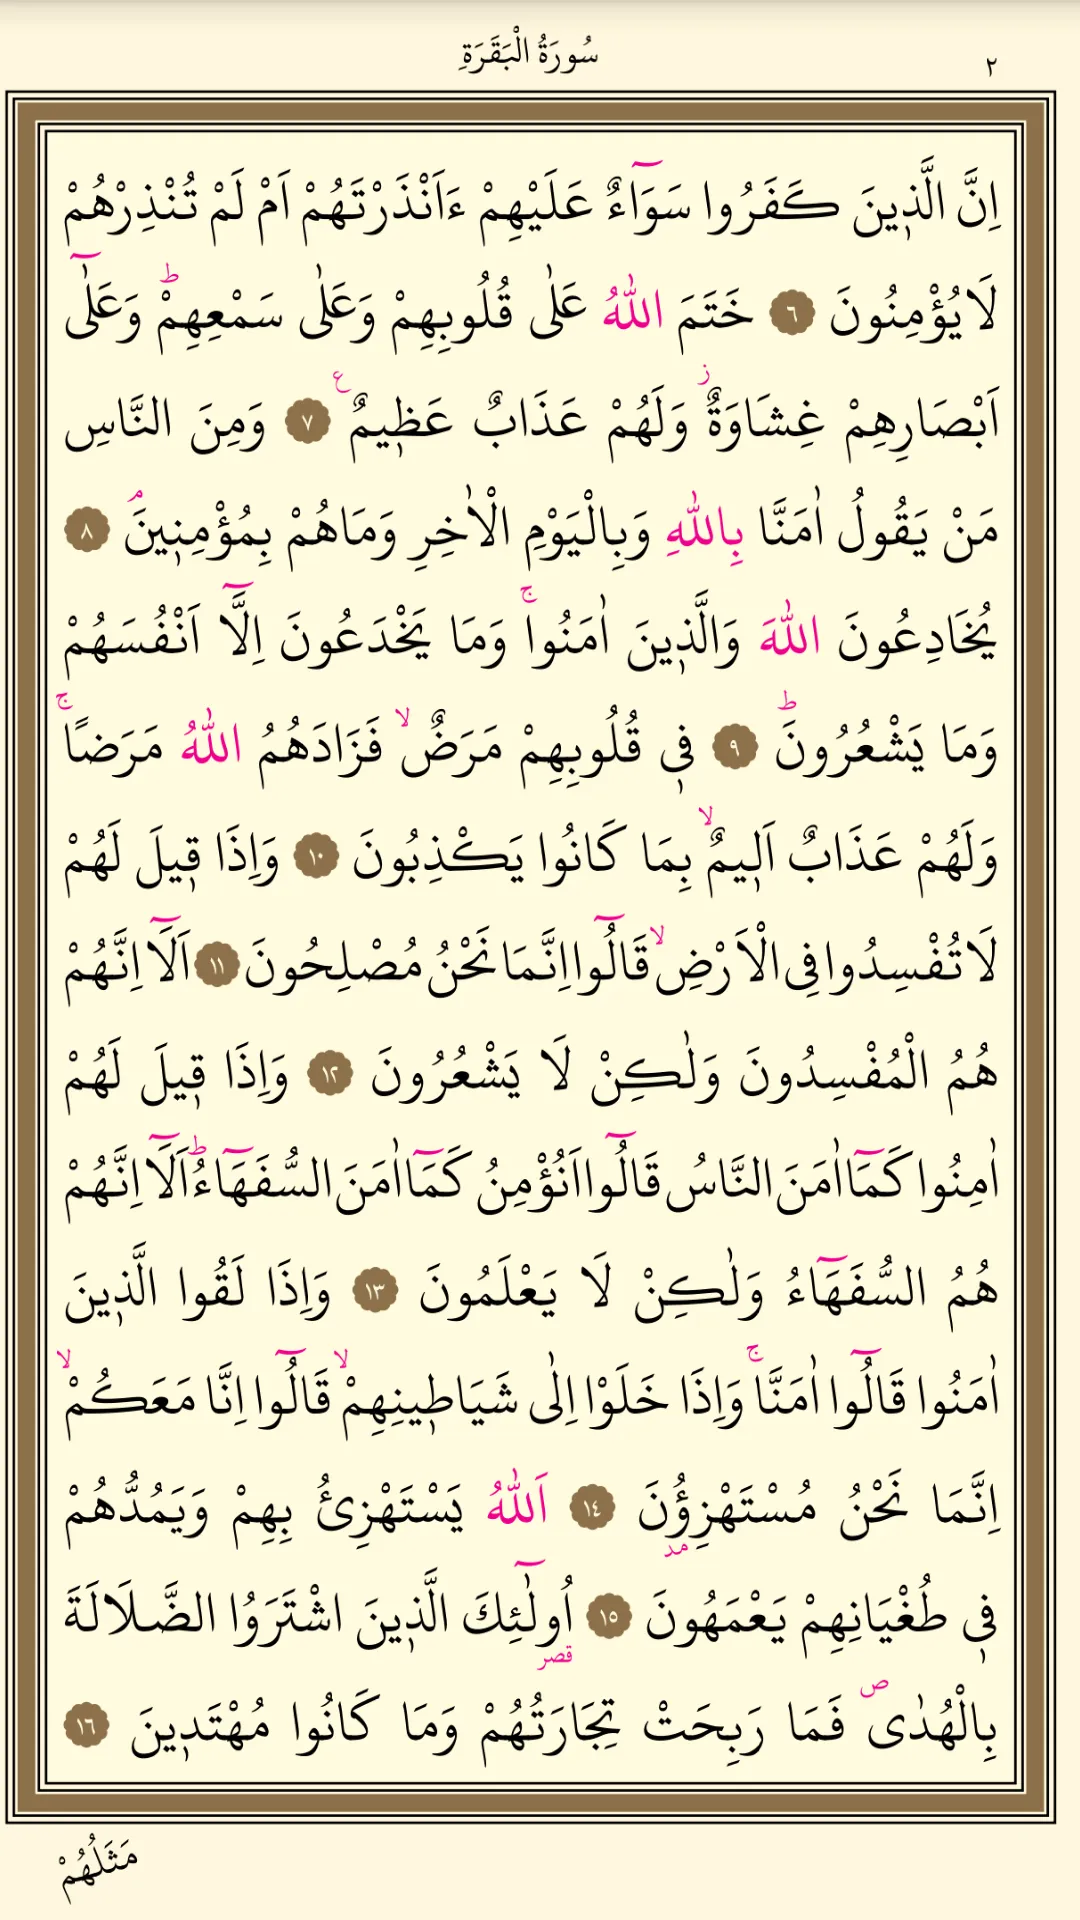 سُورَةُ الْبَقَرَةِ
٢
اِنَّ الَّذ۪ينَ كَفَرُوا سَوَٓاءٌ عَلَيْهِمْ ءَاَنْذَرْتَهُمْ اَمْ لَمْ تُنْذِرْهُمْ
لَا يُؤْمِنُونَ ٦ خَتَمَ اللّٰهُ عَلٰى قُلُوبِهِمْ وَعَلٰى سَمْعِهِمْۜ وَعَلٰٓى
اَبْصَارِهِمْ غِشَاوَةٌۘ وَلَهُمْ عَذَابٌ عَظ۪يمٌ۟ ٧ وَمِنَ النَّاسِ
مَنْ يَقُولُ اٰمَنَّا بِاللّٰهِ وَبِالْيَوْمِ الْاٰخِرِ وَمَا هُمْ بِمُؤْمِن۪ينَۢ ٨
يُخَادِعُونَ اللّٰهَ وَالَّذ۪ينَ اٰمَنُواۚ وَمَا يَخْدَعُونَ اِلَّٓا اَنْفُسَهُمْ
وَمَا يَشْعُرُونَۜ ٩ ف۪ي قُلُوبِهِمْ مَرَضٌۙ فَزَادَهُمُ اللّٰهُ مَرَضًاۚ
وَلَهُمْ عَذَابٌ اَل۪يمٌۙ بِمَا كَانُوا يَكْذِبُونَ ١٠ وَاِذَا ق۪يلَ لَهُمْ
لَا تُفْسِدُوا فِي الْاَرْضِۙ قَالُٓوا اِنَّمَا نَحْنُ مُصْلِحُونَ ١١ اَلَٓا اِنَّهُمْ
هُمُ الْمُفْسِدُونَ وَلٰكِنْ لَا يَشْعُرُونَ ١٢ وَاِذَا ق۪يلَ لَهُمْ
اٰمِنُوا كَمَٓا اٰمَنَ النَّاسُ قَالُٓوا اَنُؤْمِنُ كَمَٓا اٰمَنَ السُّفَهَٓاءُۜ اَلَٓا اِنَّهُمْ
هُمُ السُّفَهَٓاءُ وَلٰكِنْ لَا يَعْلَمُونَ ١٣ وَاِذَا لَقُوا الَّذ۪ينَ
اٰمَنُوا قَالُٓوا اٰمَنَّاۚ وَاِذَا خَلَوْا اِلٰى شَيَاط۪ينِهِمْۙ قَالُٓوا اِنَّا مَعَكُمْۙ
اِنَّمَا نَحْنُ مُسْتَهْزِؤُ۫نَ ١٤ اَللّٰهُ يَسْتَهْزِئُ بِهِمْ وَيَمُدُّهُمْ
مد
ف۪ي طُغْيَانِهِمْ يَعْمَهُونَ ١٥ اُولٰٓئِكَ الَّذ۪ينَ اشْتَرَوُا الضَّلَالَةَ
قصر
بِالْهُدٰىۖ فَمَا رَبِحَتْ تِجَارَتُهُمْ وَمَا كَانُوا مُهْتَد۪ينَ ١٦
مَثَلُهُمْ